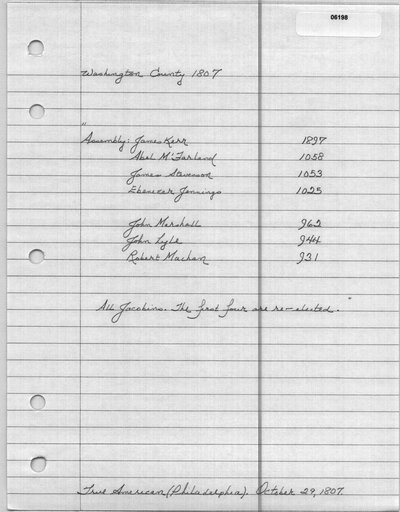 06198
Washington County 1807
"
Assembly: James Kerr 1897
Abel M'Farland 1058
James Stevenson 1053
Ebenezer Jennings 1025
John Marshall 962
John Lyle 944
Robert Machan 931
All Jacobins. The first four are re-elected.
True American (Philadelphia). October 29, 1807.